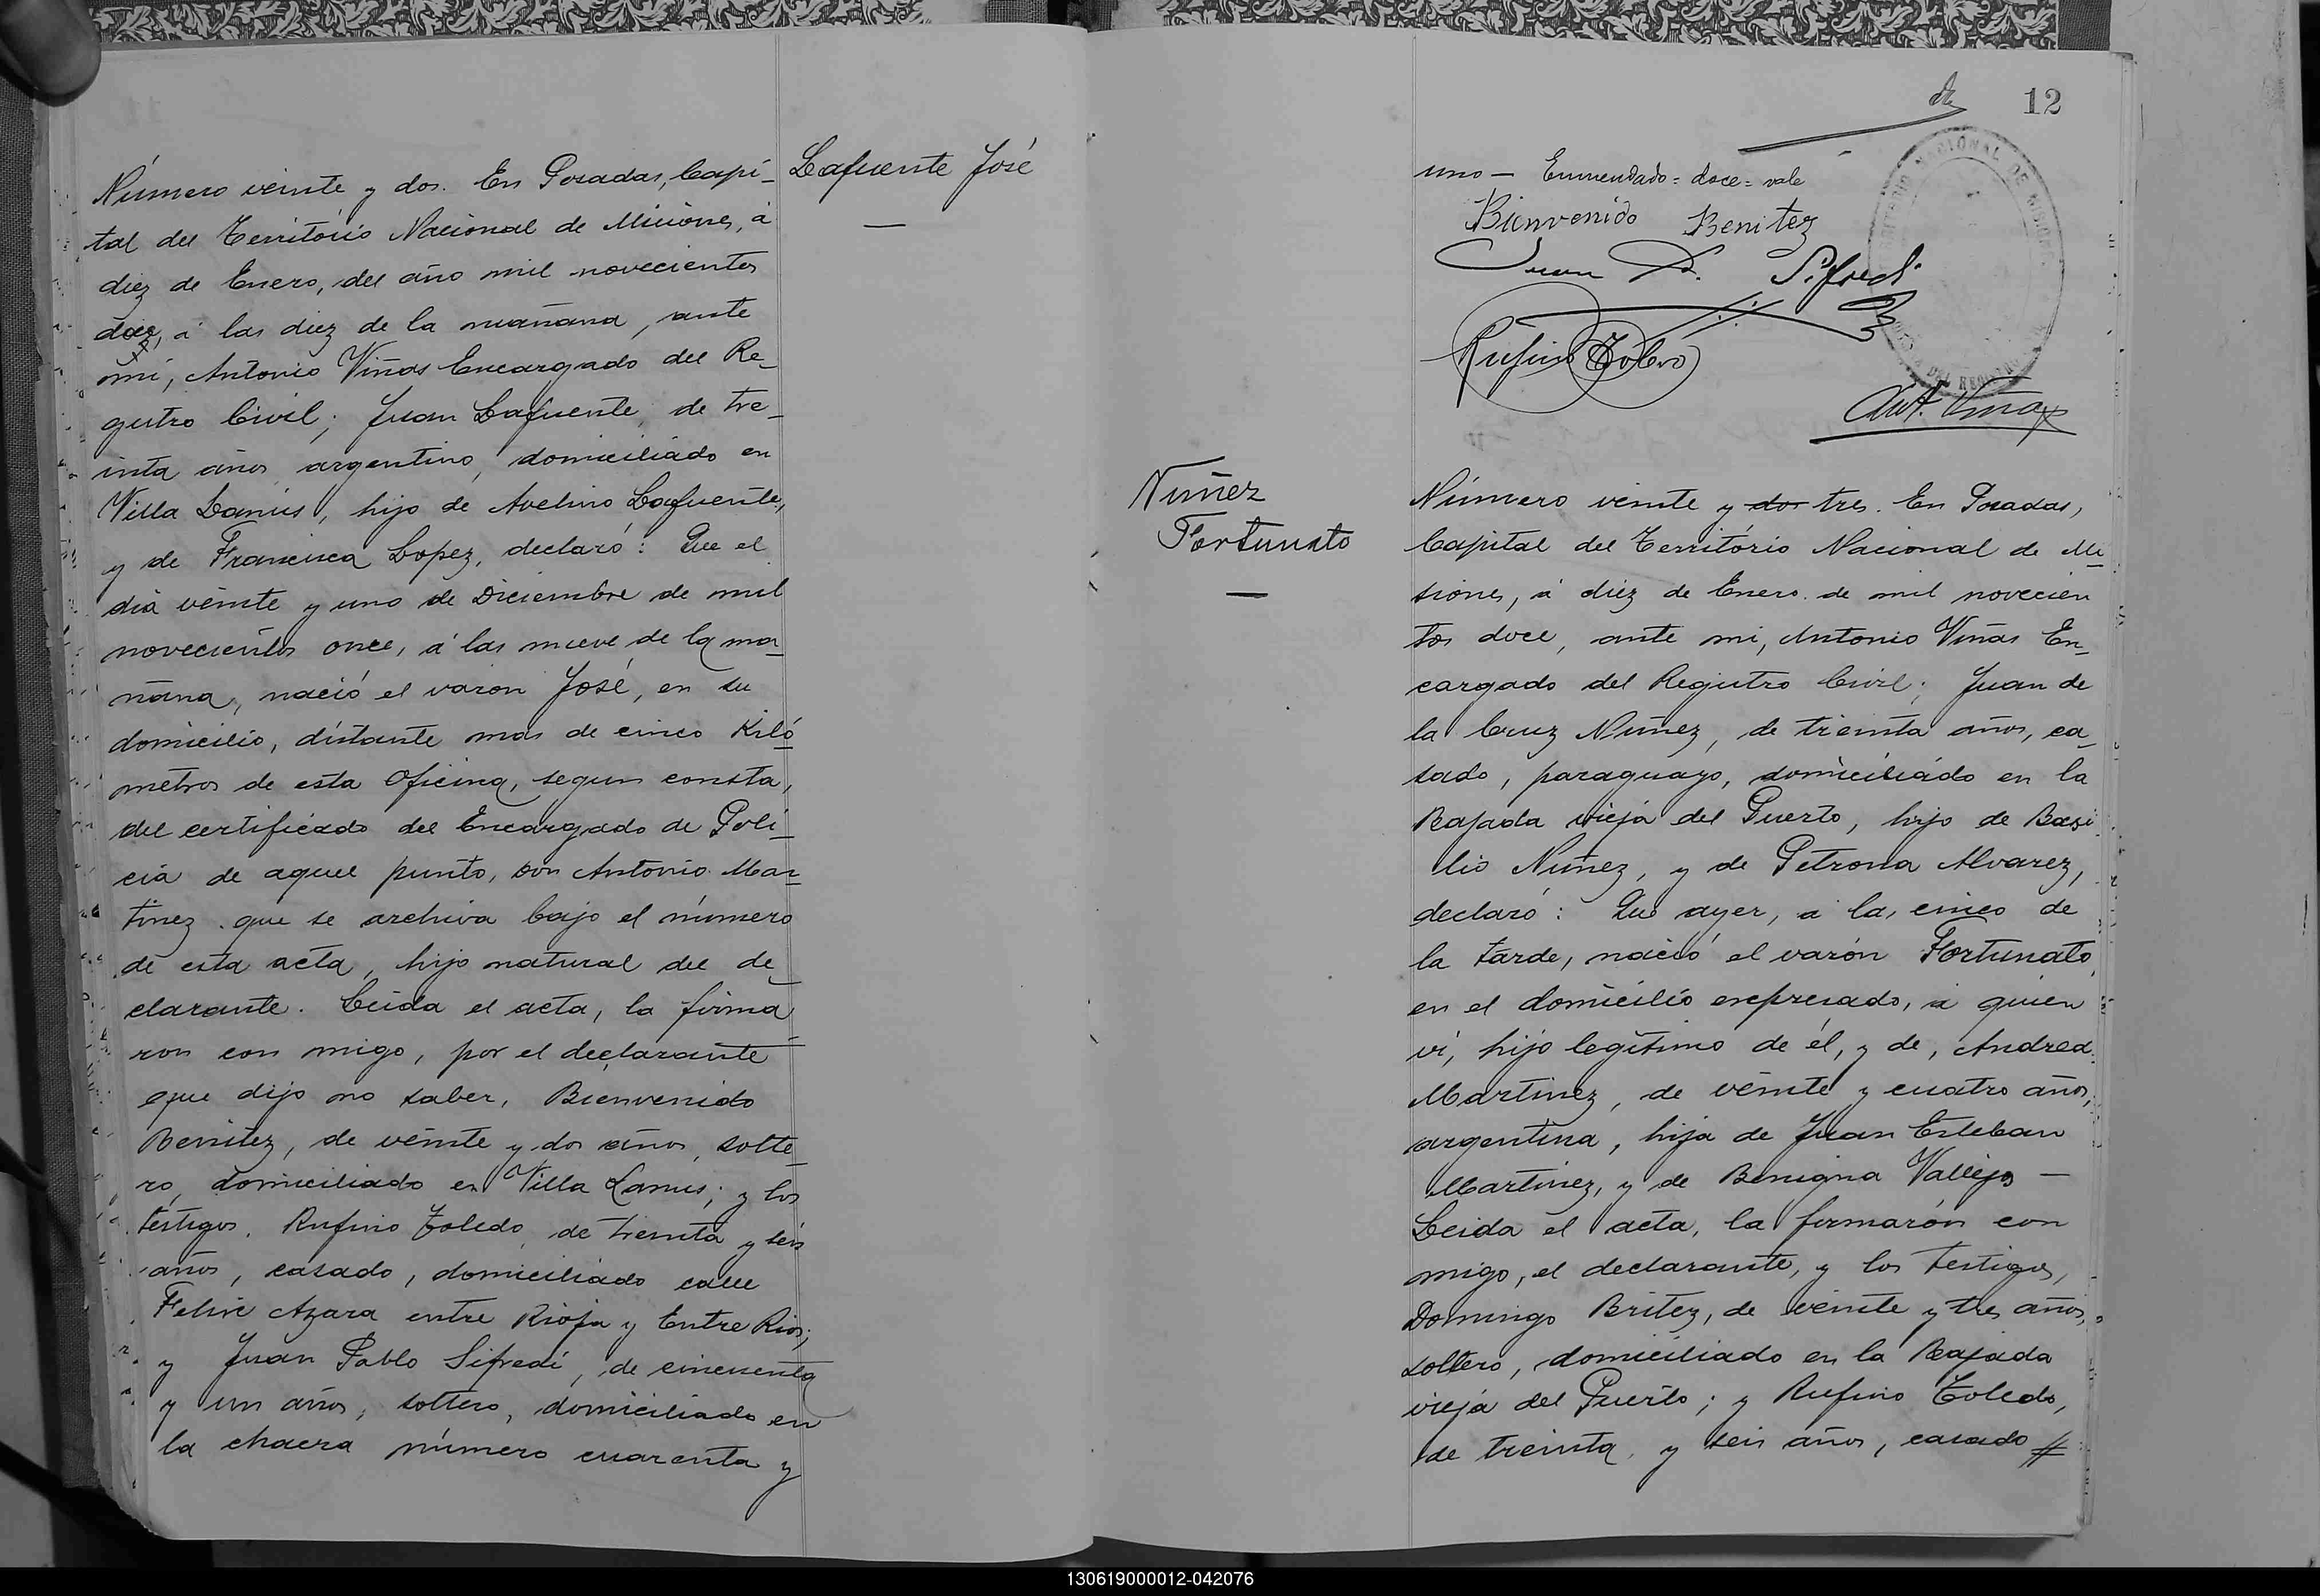 Lafuente José
Número veinte y dos. En Posadas, Capi-
tal del Território Nacional de Misiones, á
diez de Enero, del año mil novecientos
doce, á las diez de la mañana, ante
mi, Antonio Viñas Encargado del Re-
gistro Civil; Juan Lafuente, de tre-
inta años, argentino, domiciliado en
Villa Lanús, hijo de Avelino Lafuente,
y de Francisca Lopez, declaró: Que el
dia veinte y uno de Diciembre de mil
novecientos once, á las nueve de la ma-
ñana, nació el varon José, en su
domicilio, distante mas de cinco Kiló-
metros de esta Oficina, segun consta,
del certificado del Encargado de Poli-
cia de aquel punto, Don Antonio Mar-
tinez que se archiva bajo el número
de esta acta, hijo natural del de-
clarante. Leida el acta, la firma-
ron con migo, por el declarante
que dijo no saber, Bienvenido
Benitez, de veinte y dos años, solte-
ro, domiciliado en Villa Lanus; y los
testigos, Rufino Toledo, de treinta y seis
años, casado, domiciliado calle
Felix Azara entre Rioja y Entre Rios;
y Juan Pablo Sifredi, de cincuenta
y un años, soltero, domiciliado en
la chacra número cuarenta y
12
uno — Enmendado = doce = vale
Bienvenido Benitez
Juan P. Sifredi
Rufino Toledo
Ant. Viñas
Nuñez
Fortunato
Número veinte y dos tres. En Posadas,
Capital del Território Nacional de Mi-
siones, á diez de Enero de mil novecien
tos doce, ante mi, Antonio Viñas En-
cargado del Registro Civil; Juan de
la Cruz Nuñez, de treinta años, ca-
sado, paraguayo, domiciliado en la
Bajada vieja del Puerto, hijo de Basi
lio Nuñez, y de Petrona Alvarez,
declaró: Que ayer, á las cinco de
la tarde, nació el varón Fortunato,
en el domicilio expresado, á quien
vi, hijo legítimo de él, y de, Andrea
Martinez, de veinte y cuatro años,
argentina, hija de Juan Esteban
Martinez, y de Benigna Vallejos —
Leida el acta, la firmarón con
migo, el declarante, y los testigos,
Domingo Britez, de veinte y tres años,
soltero, domiciliado en la Bajada
vieja del Puerto; y Rufino Toledo,
de treinta y seis años, casado #
130619000012-042076